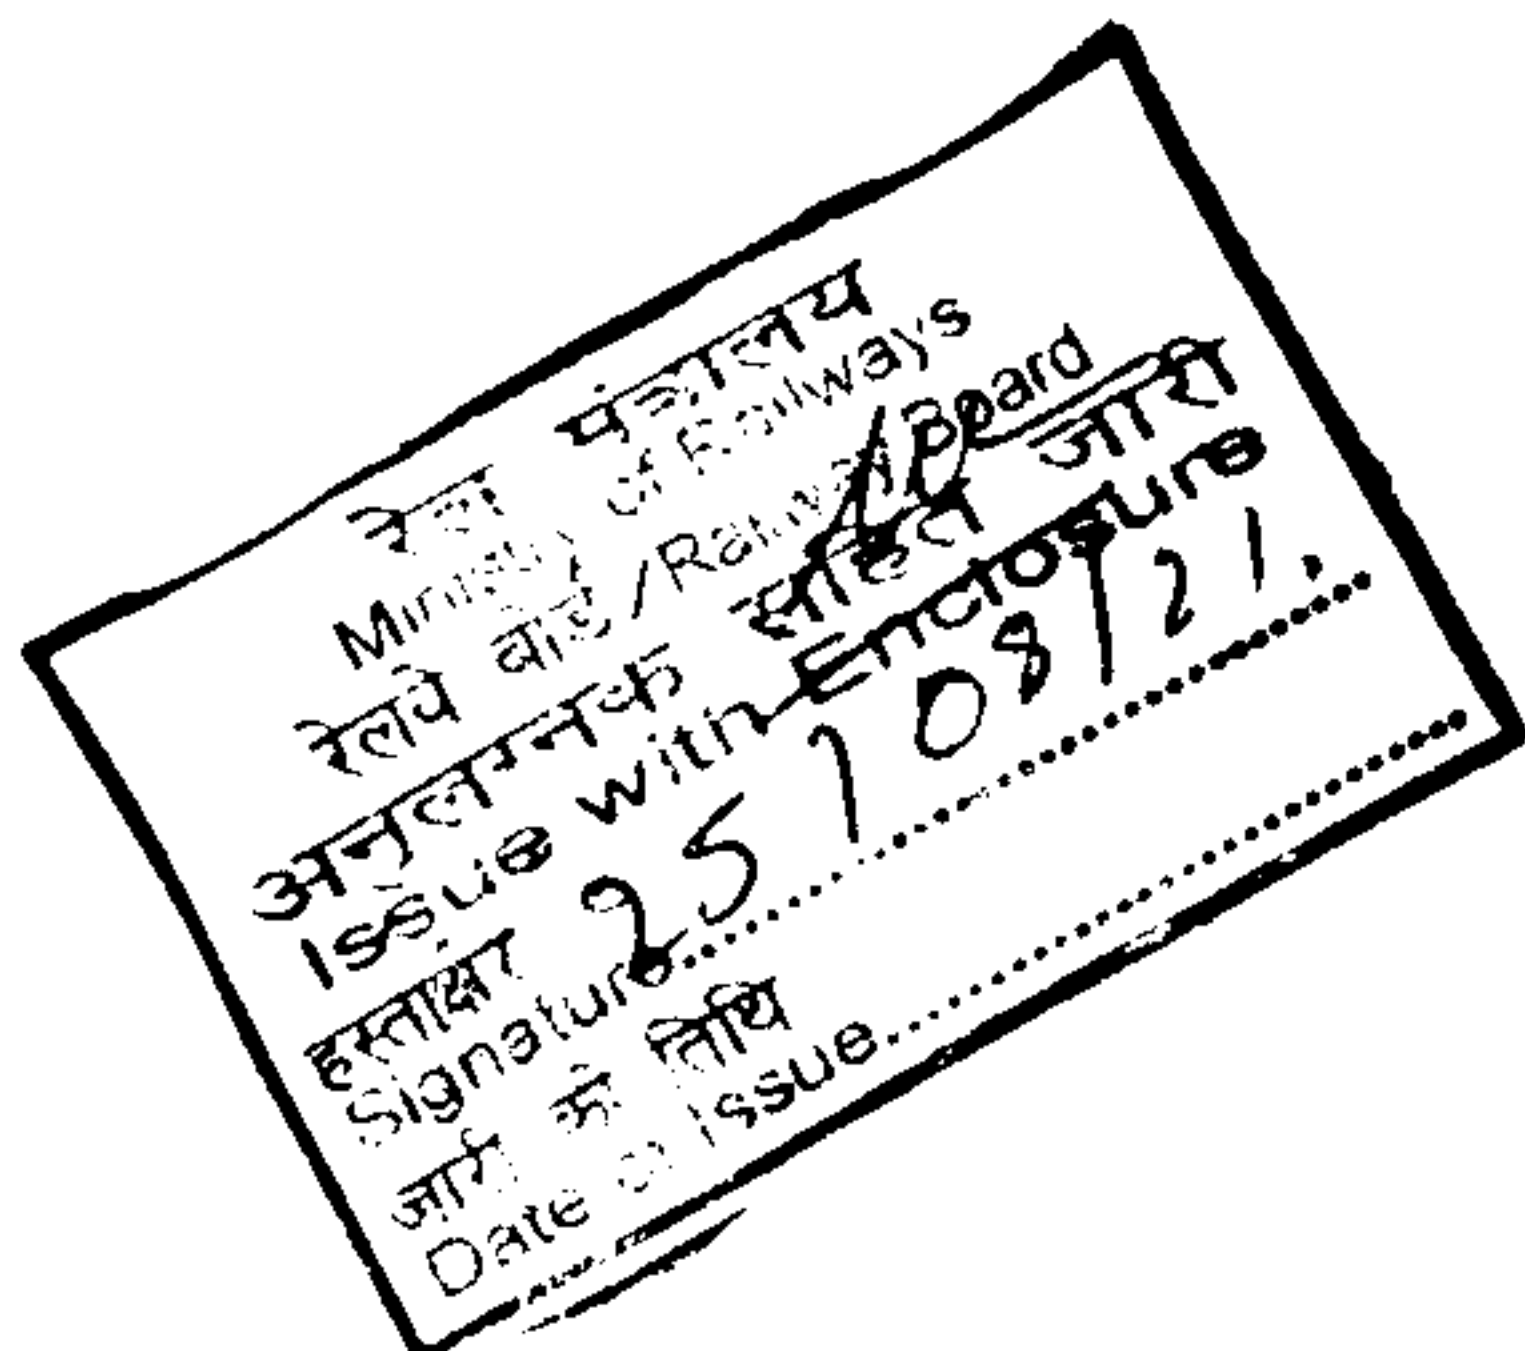 रेल मंत्रालय
Ministry of Railways
रेलवे बोर्ड/Railway Board
अनुलग्नक सहित जारी
Issue with Enclosure
हस्ताक्षर
Signature
25/08/21.
जारी की तिथि
Date of Issue